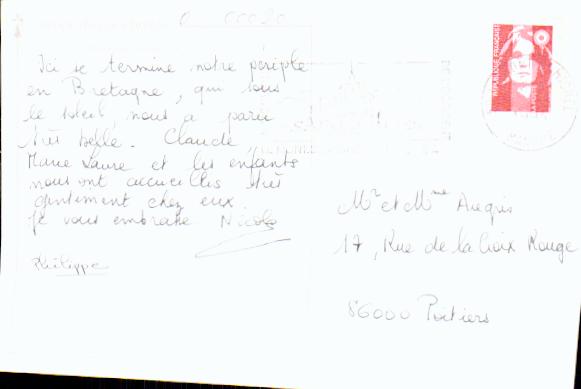 0 00020
Ici se termine notre périple
en Bretagne, qui sous
le soleil, nous a paru
très belle. Claude,
Marie Laure et les enfants
nous ont accueillis très
gentiment chez eux.
Je vous embrasse Nicole
Philippe
REPUBLIQUE FRANÇAISE
Mr et Mme
17, Rue de la Croix Rouge
86000 Poitiers